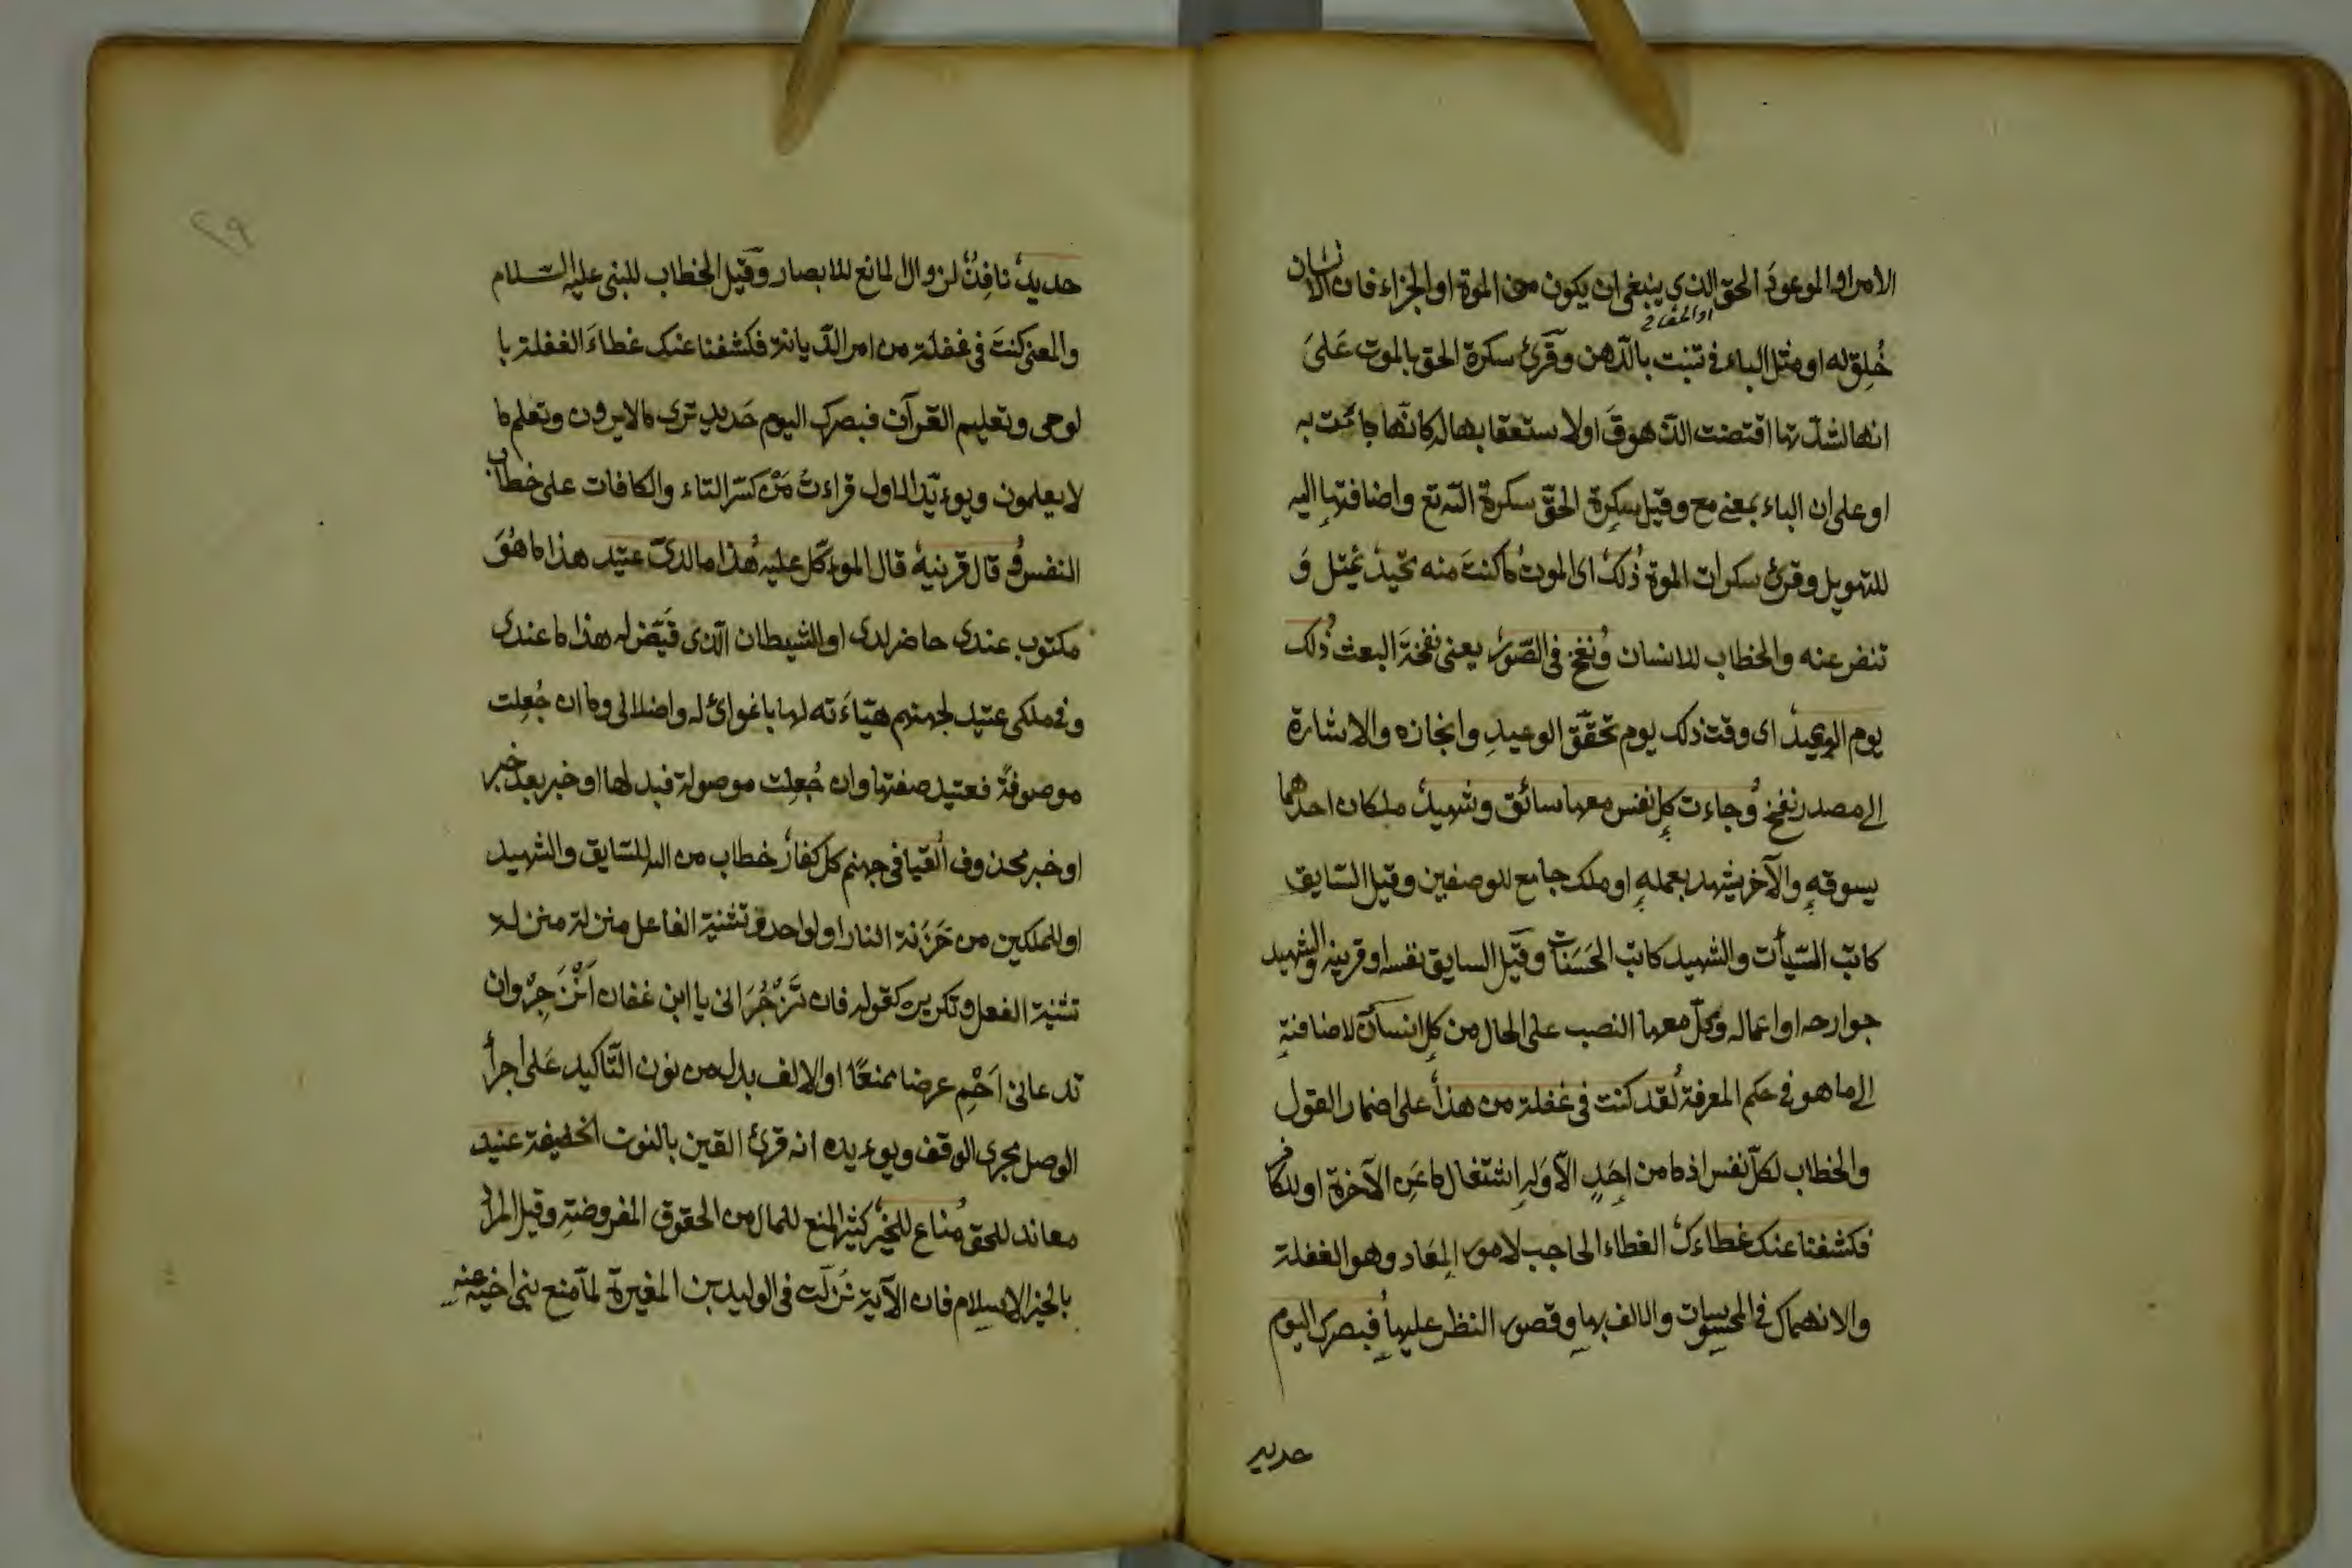 الامر او الموعود الحق الذي ينبغى ان يكون من الموة او الجزاء فان الانسان
خُلِق له او مثل الباء في تنبت بالدّهن وقُرئ سكرة الحق بالموت عَلىَ
انها لشدّتها اقتضت الذهوقَ او لاستعقابها له كانّها جائت به
او على ان الباء بمعنى مع وقيل سكرة الحقّ سكرة الله تع واضافتها اليه
للتهويل وقرئ سكرات الموة ذُلك اى الموت ما كنت منه تحيدُ تميل وَ
تنفر عنه والخطاب للانسان وُنفخ فى الصّور يعنى نفخةَ البعث ذُلك
يوم الوعيد اى وقت ذلك يوم تحقّق الوعيدِ وانجازه والاشارة
الى مصدر نفخ وُجاءت كل نفس معها سائق وشهيد ملكان احدهما
يسوقه والآخر يشهد بعمله او ملك جامع للوصفين وقيل السّايق
كاتب السّيأت والشهيد كاتب الحَسَنات وقيل السايق نفسه او قرينه والشهيد
جوارحه او اعماله ومحلّ معها النصب على الحال من كل انسان لاضافته
الى ما هو فى حكم المعرفة لُقد كنت فى غفلة من هذا على اضمار القول
والخطاب لكلّ نفس اذ ما من احَدٍ الّا وَله اشتغال ما عَنِ الآخرة او للكافر
فكشفنا عنك غطاءك الغطاء الحاجب لامور المعَاد وهو الغفلة
والانهماك فى المحسوسات والالف بها وقصور النظر عليها فُبصرك اليوم
حديد
حديدٌ نافِذٌ لزوال المانع للابصار وقيل الخطاب للنبى عليه السّلام
والمعنى كنتَ فى غفلة من امر الدّيانة فكشفنا عنك غطاءَ الغفلة با
لوحى وتعليم القرآن فبصرك اليوم حَديد ترى ما لا يرون وتعلم ما
لا يعلمون ويوءيّد الاول قراءتُ مَنْ كسَر التاء والكافات على خطاب
النفس وُ قال قرينهُ قال الموءكّل عليه هُذا مالدىّ عتيد هذا ما هُوَ
مكتوب عندى حاضر لدى او الشيطان الّذى قيّض له هذا ما عندى
وفى ملكى عتيد لجهنم هيّاءته لها باغوائ له واضلالى وما ان جُعِلت
موصوفةً فعتيد صفتها وان جُعِلت موصولة فبدلها او خبر بعد خبر
او خبر محذوف القُيا فى جهنم كل كفار خطاب من الله للسّايق والشهيد
او للملكين من خَزَنة النار او لواحد وتثنية الفاعل منزلة منزلة
تثنية الفعل وتكريره كقوله فان تَزْجُرَانى يا ابن عفان اَنْزَجِرْ وان
تدعانى اَحْمِ عرضا ممنعًا او الالف بدل من نون التّاكيد عَلى اجرأ
الوصل مجرى الوقف ويوءيده انه قرئ القين بالنون الخفيفة عنيد
معاند للحق مُناع للخير كثير المنع للمال من الحقوق المفروضة وقيل المراد
بالخير الاسلام فان الآية نُزلَت فى الوليد بن المغيرة لمّا منع بنى اخيه عنه